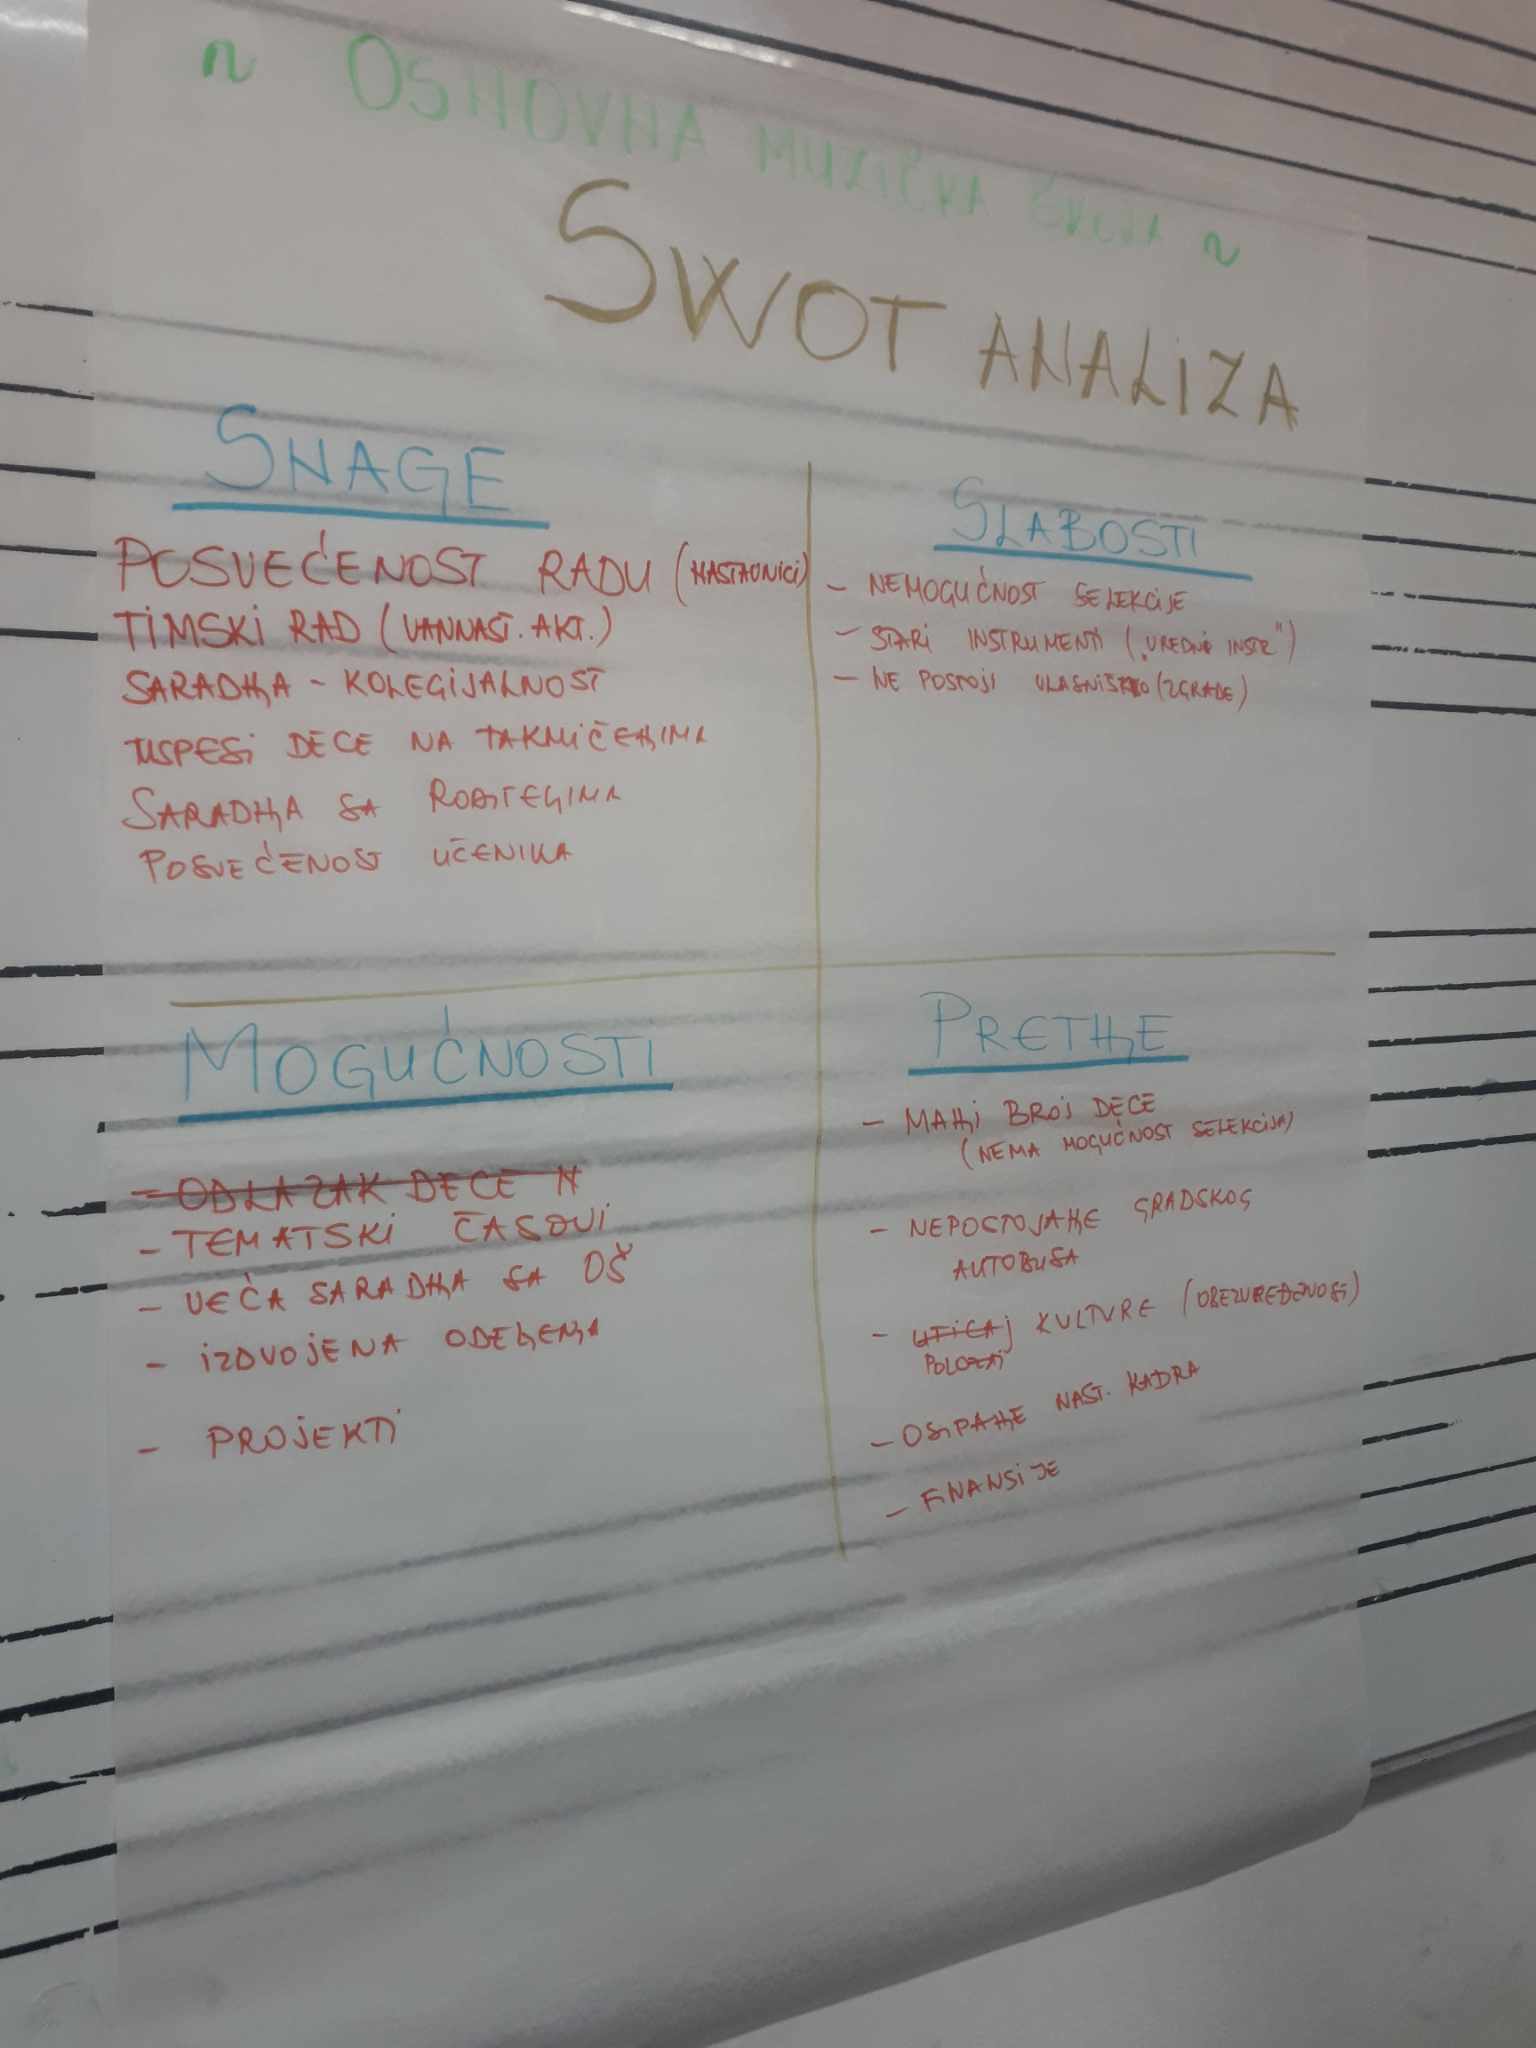 ~ OSНOVНA MUZIČKA ŠKOLA ~
SWOT ANALIZA
SNAGE
POSVEĆENOST RADU (НASTAVNICI)
TIMSKI RAD (VANNAST. AKT.)
SARADЊA - KOLEGIJALNOST
USPESI DECE NA TAKMIČEЊIMA
SARADЊA SA RODITEЉIMA
POSVEĆENOST UČENIKA
SLABOSTI
- NEMOGUĆNOST SELEKCIJE
- STARI INSTRUMENTI („VREDNI INSTR")
- NE POSTOJI VLASNIŠTVO (ZGRADE)
MOGUĆNOSTI
- ODLAZAK DECE N
- TEMATSKI ČASOVI
- VEĆA SARADЊA SA OŠ
- IZDVOJENA ODEЉEЊA
- PROJEKTI
PRETЊE
- MAЊI BROJ DECE
(NEMA MOGUĆNOST SELEKCIJA)
- NEPOSTOJAЊE GRADSKOG
AUTOBUSA
- UTICAJ KULTURE (OBEZVREĐENOST)
POLOŽAJ
- OSIPAЊE NAST. KADRA
- FINANSIJE